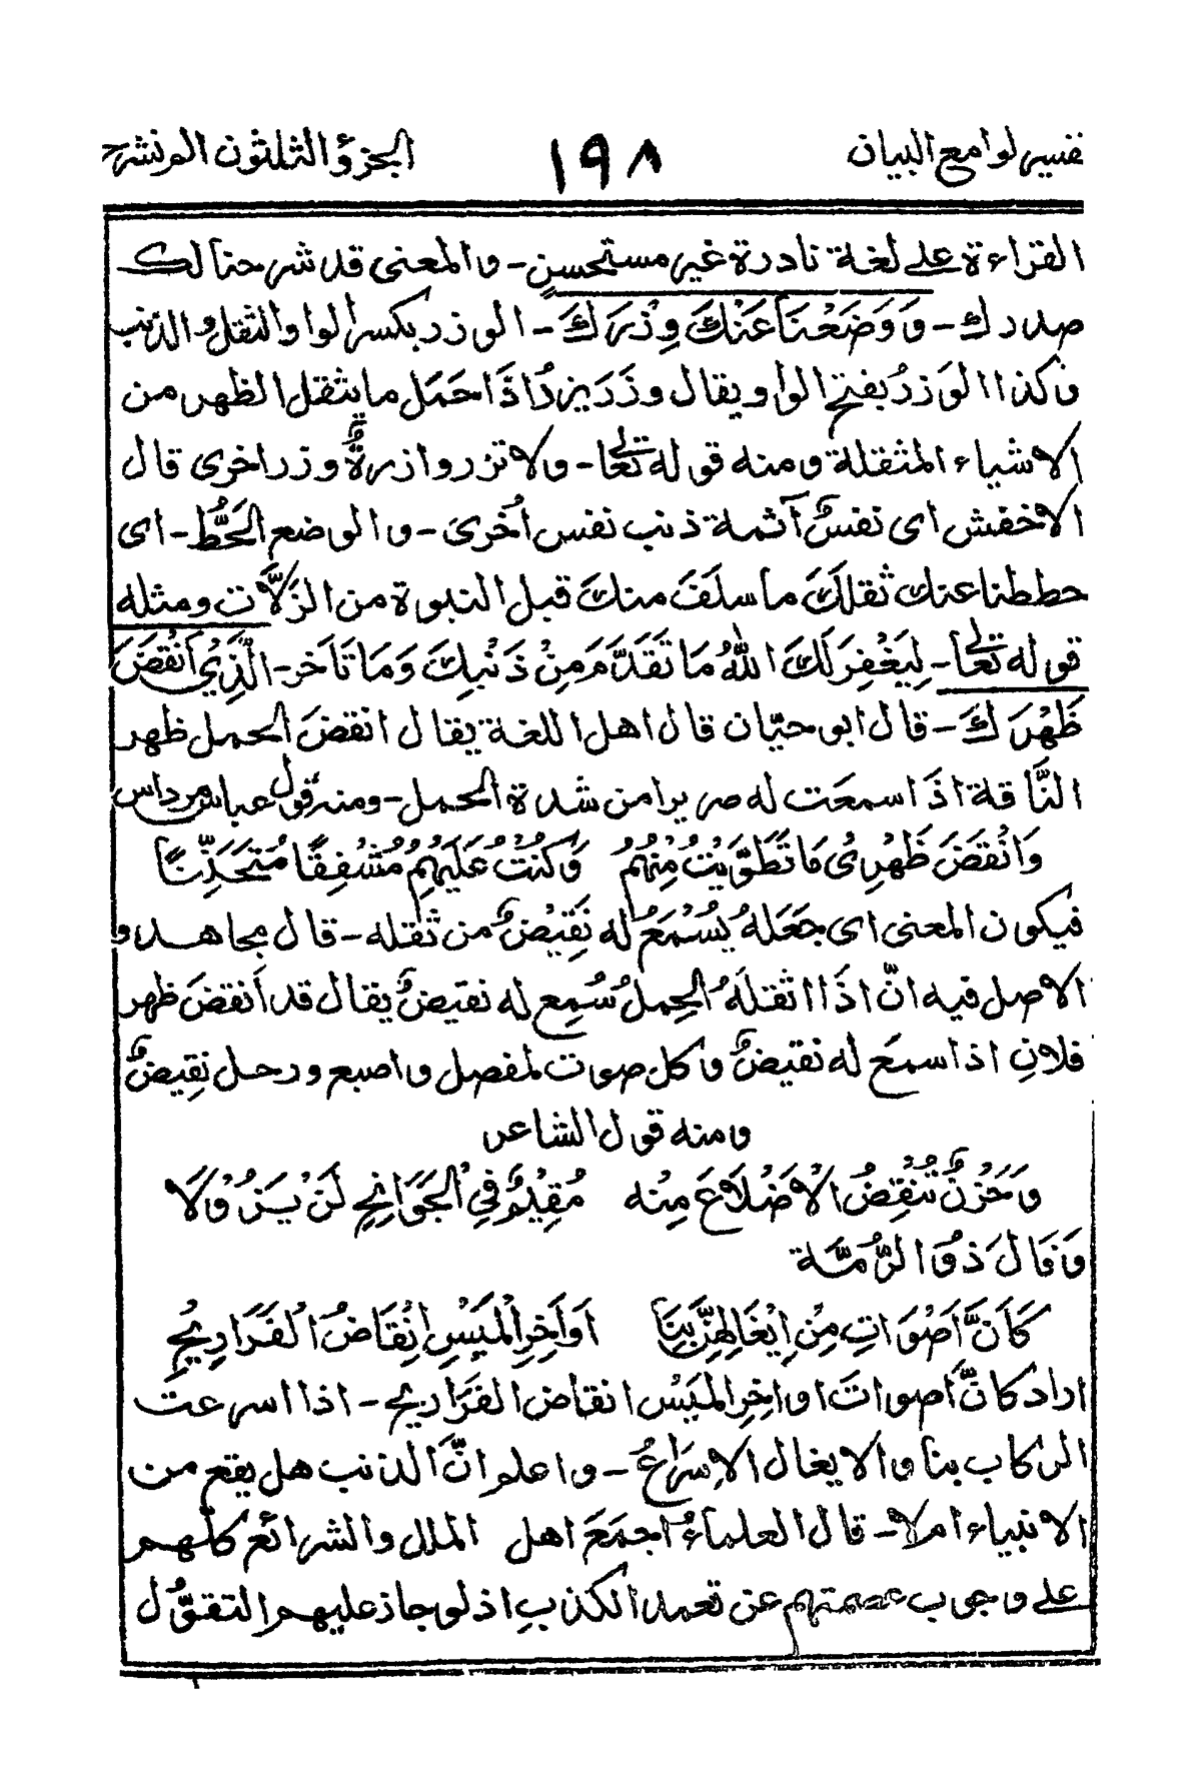 تفسير لوامع البيان
١٩٨
الجزؤ الثلثون الم نشرح
القراءة على لغة نادرة غير مستحسن - والمعنى قد شرحنا لك
صدرك - وَوَضَعْنَا عَنْكَ وِزْرَكَ - الوزر بكسر الواو الثقل والذنب
وكذا الوَزرُ بفتح الواو ويقال وزَرَ يزرُ اذَا حَمَل ما يثقل الظهر من
الاشياء المثقلة ومنه قوله تعالى - ولا تزر وازرةٌ وزر اخرى قال
الاخفش اى نفسٌ آثمة ذنب نفس اُخرىٰ - والوضع الحَطُّ - اى
حططنا عنك ثقلَكَ ما سلَفَ منكَ قبل النبوة من الزلَّات ومثله
قوله تعالى - لِيَغْفِرَ لَكَ اللهُ مَا تَقَدَّمَ مِنْ ذَنْبِكَ وَمَا تَاَخر - الَّذِيْ اَنْقَضَ
ظَهْرَكَ - قال ابو حيّان قال اهل اللغة يقال انقضَ الحمل ظهر
النَّاقة اذَا سمعَت له صريرا من شدة الحمل - ومنه قول عباس بن مرداس
وَانْقَضَ ظَهْرِىْ مَا تَطَوَّيْتُ مِنْهُمُ وَكُنْتُ عَلَيْهِمْ مُشْفِقًا مُتَحَنِّنًا
فيكون المعنى اى جعَلَهُ يُسْمَعُ له نَقِيْضٌ من ثقله - قال مجاهد و
الاصل فيه انّ اذَا اثقلَهُ الحِملُ سُمِع له نقيضٌ يقال قد اَنقضَ ظهر
فلانِ اذا سمعَ له نقيضٌ وكل صوت لمفصل واصبع ورحل نِقيضٌ
ومنه قول الشاعر
وَحَزْنٌ تُنْقِضُ الْاَضْلَاعَ مِنْه مُقِيْمٌ فِي الْجَوَانِحِ لَنْ يَزُوْلَا
وَقَالَ ذُو الرُّمَّة
كَاَنَّ اَصْوَاتِ مِنْ اِيْغَالِهِنَّ بِنَا اَوَاخِرِ الْمَيْسِ اِنْقَاضُ الْفَرَارِيْجِ
اراد كانّ اَصواتَ اواخِرِ المَيْس انقاض الفَرَاريج - اذا اسرعت
الركاب بنا والايغال الاِسراعُ - واعلم انَّ الذنب هل يقع من
الانبياء ام لا - قال العلماءُ اجمَعَ اهل الملل والشرائع كلّهم
على وجوب عصمتهم عن تعمد الكذبِ اذ لو جاز عليهم التقوُّل